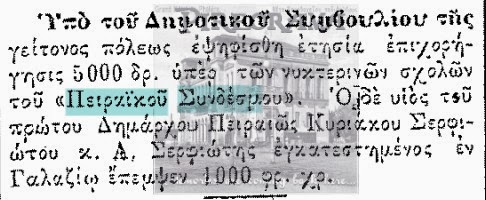 Ὑπὸ τοῦ Δημοτικοῦ Συμβουλίου τῆς
γείτονος πόλεως ἐψηφίσθη ἐτησία ἐπιχορή-
γησις 5000 δρ. ὑπὲρ τῶν νυκτερινῶν σχολῶν
τοῦ «Πειραϊκοῦ Συνδέσμου». Ὁ δὲ υἱὸς τοῦ
πρώτου Δημάρχου Πειραιῶς Κυριάκου Σερφι-
ώτου κ. Α. Σερφιώτης ἐγκατεστημένος ἐν
Γαλαζίῳ ἔπεμψεν 1000 φρ. χρ.